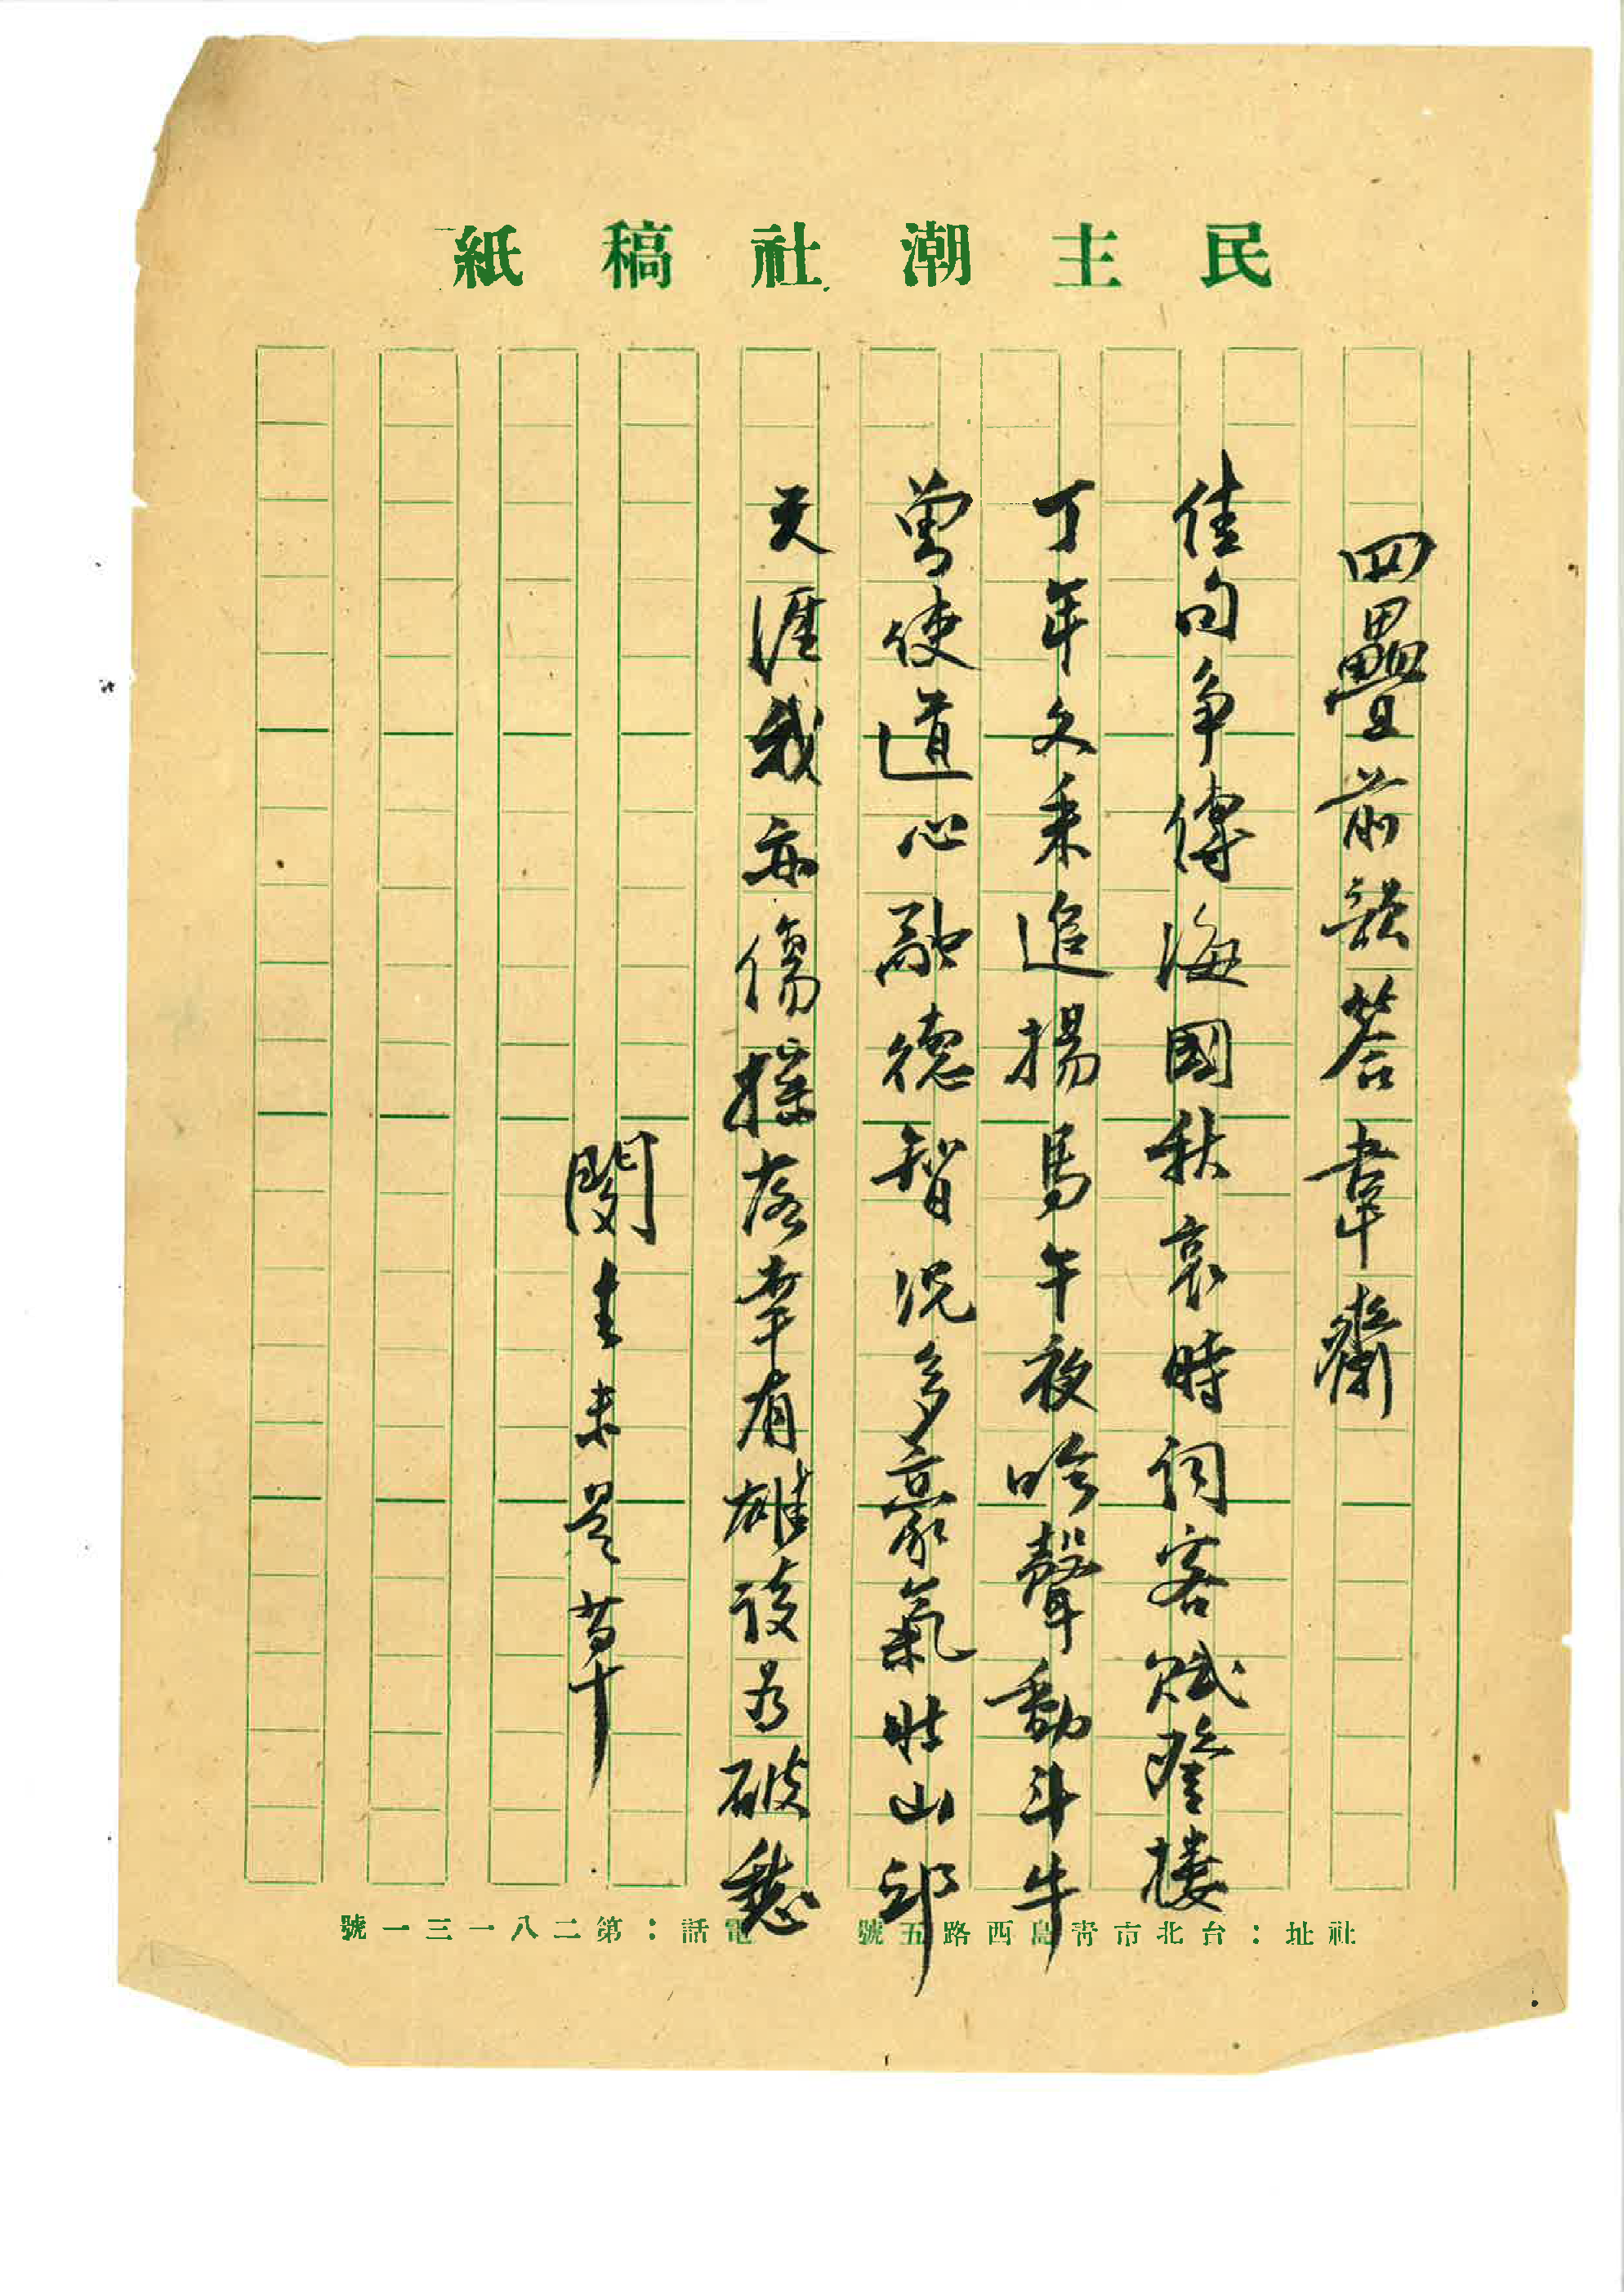 民主潮社稿紙
四疊前韻答韋齋
佳句爭傳海國秋哀時詞客賦登樓
丁年文采追揚馬午夜吟聲動斗牛
曾使道心融德智況多豪氣壯山邱
天涯我亦傷搖落幸有雄談為破愁
閔生未是草
社址：台北市青島西路五號 電話：第二八一三一號